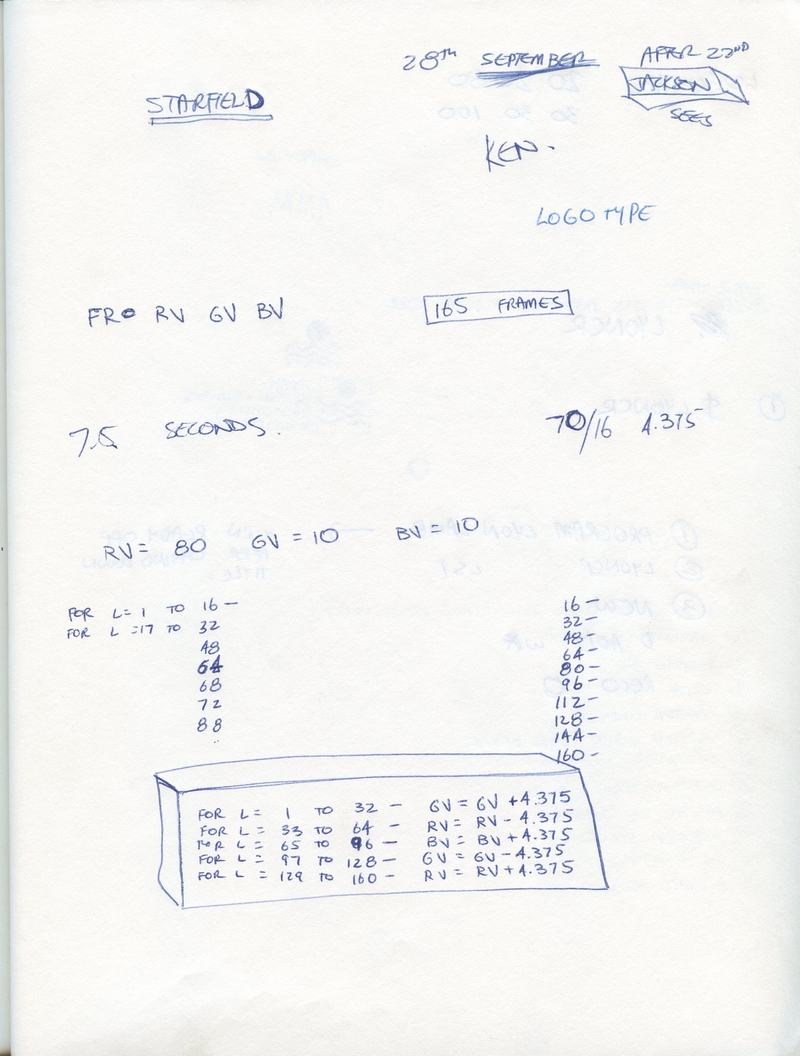 28TH SEPTEMBER
AFTER 22ND
JACKSON
SEES
STARFIELD
KEN.
LOGOTYPE
FR RV GV BV
165 FRAMES
7.5 SECONDS.
70/16 4.375
RV= 80 GV = 10 BV = 10
FOR L=1 TO 16 —
FOR L=17 TO 32
48
64
68
72
88
..
16 —
32 —
48 —
64 —
80 —
96 —
112 —
128 —
144 —
160 —
FOR L= 1 TO 32 — GV = GV +4.375
FOR L = 33 TO 64 — RV = RV - 4.375
FOR L = 65 TO 96 — BV = BV +4.375
FOR L = 97 TO 128 — GV = GV - 4.375
FOR L = 129 TO 160 — RV = RV +4.375